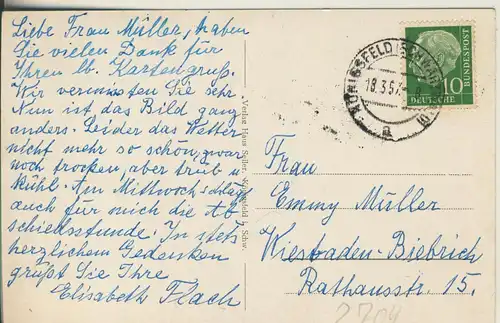 Liebe Frau Müller, haben
Sie vielen Dank für
Ihren lb. Kartengruß.
Wir vermissten Sie sehr.
Nun ist das Bild ganz
anders. Leider das Wetter
nicht mehr so schön, zwar
noch trocken, aber trüb u
kühl. Am Mittwoch schlägt
auch für mich die Ab,
schiedsstunde. In stets
herzlichem Gedenken
grüßt Sie Ihre
Elisabeth Flach
Verlag Hans Saller, Königsfeld i. Schw.
KÖNIGSFELD (SCHWARZW)
18.3.57
a
10
DEUTSCHE
BUNDESPOST
Frau
Emmy Müller
Wiesbaden-Biebrich
Rathausstr. 15.